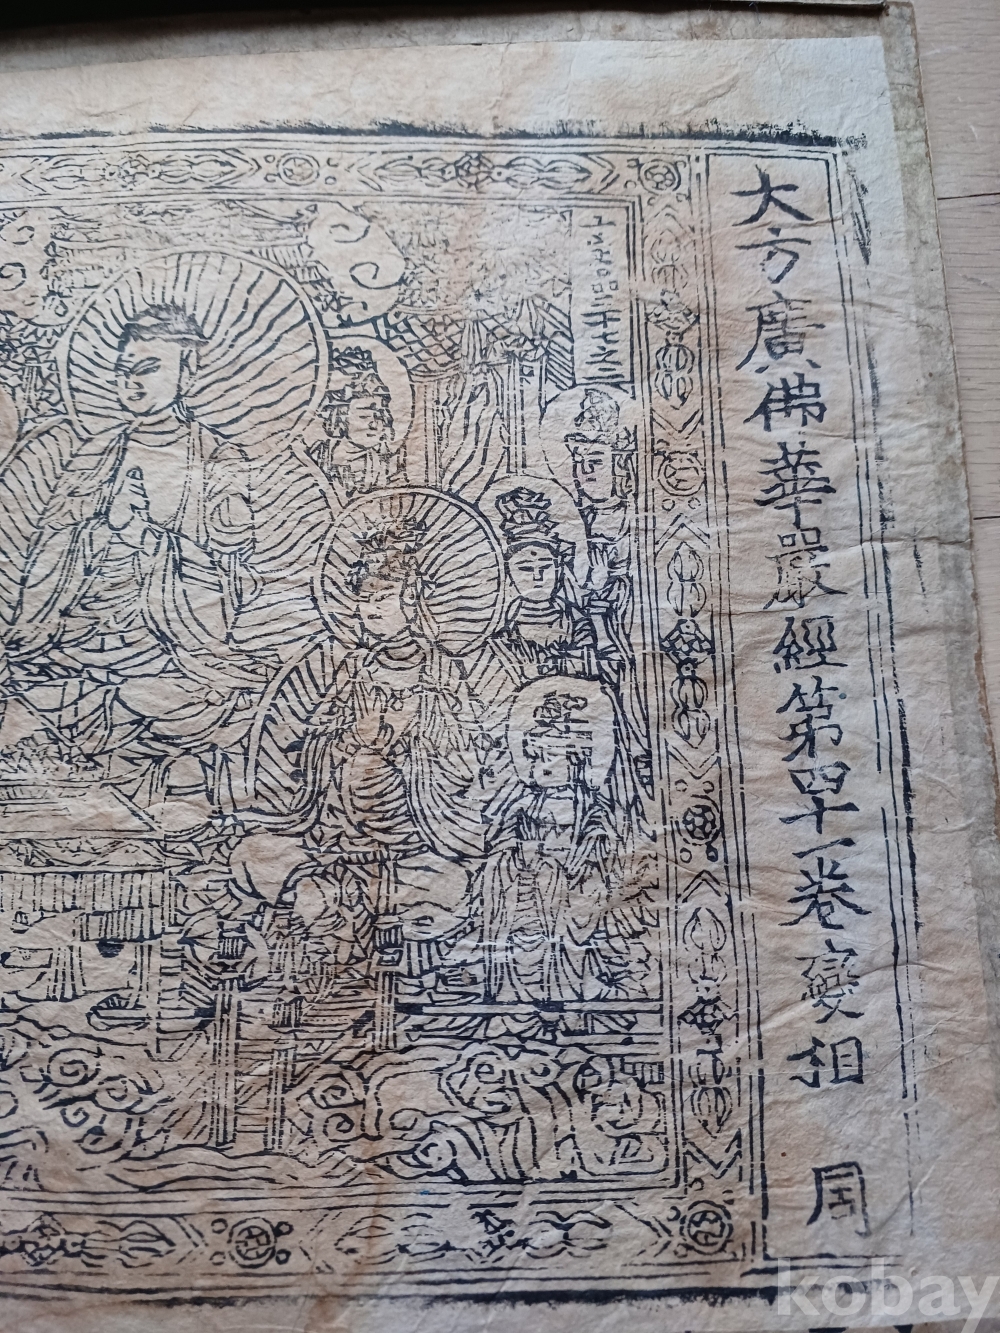 大方廣佛華嚴經第四十一卷變相 周
kobay